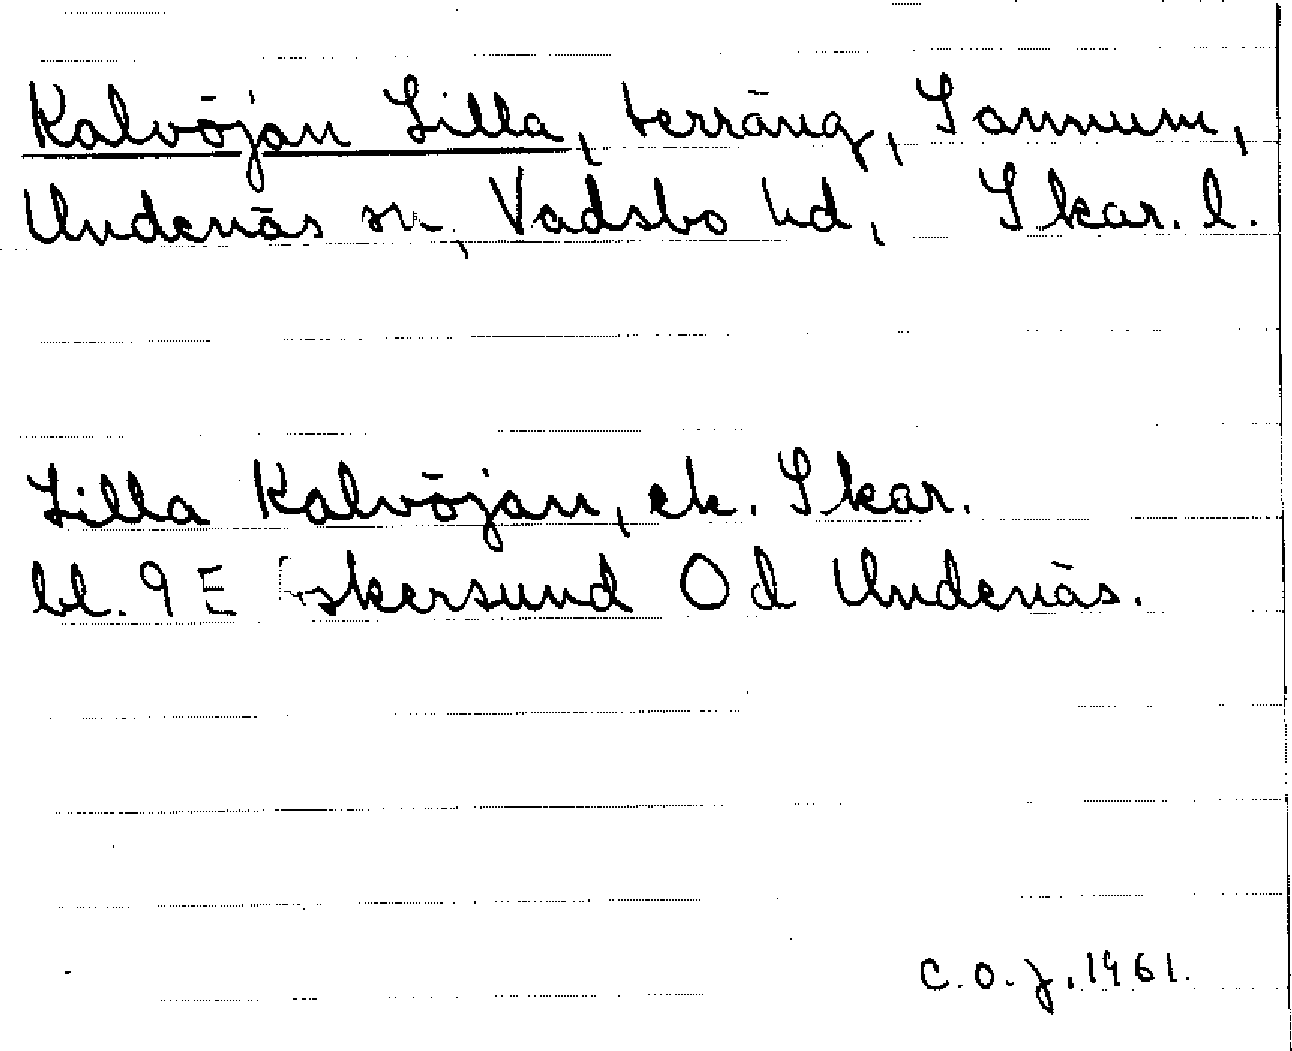 Kalvöjan Lilla, terräng, Sannum,
Undenäs sn, Vadsbo hd, Skar. l.
Lilla Kalvöjan, ek. Skar.
bl. 9 E Askersund Od Undenäs.
C.O.J. 1961.